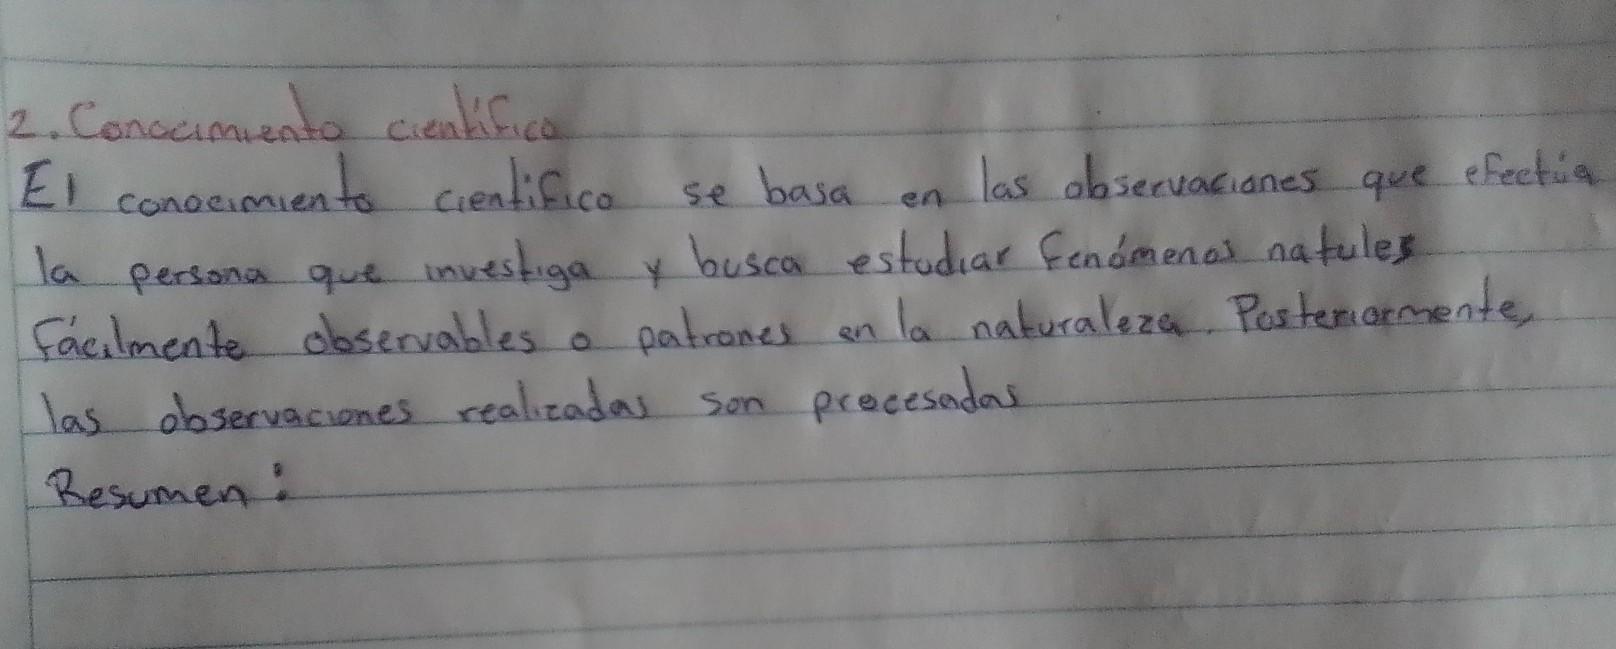 2. Conocimiento científico
El conocimiento científico se basa en las observaciones que efectúa
la persona que investiga y busca estudiar fenómenos natules
fácilmente observables o patrones en la naturaleza. Posteriormente,
las observaciones realizadas son procesadas
Resumen: